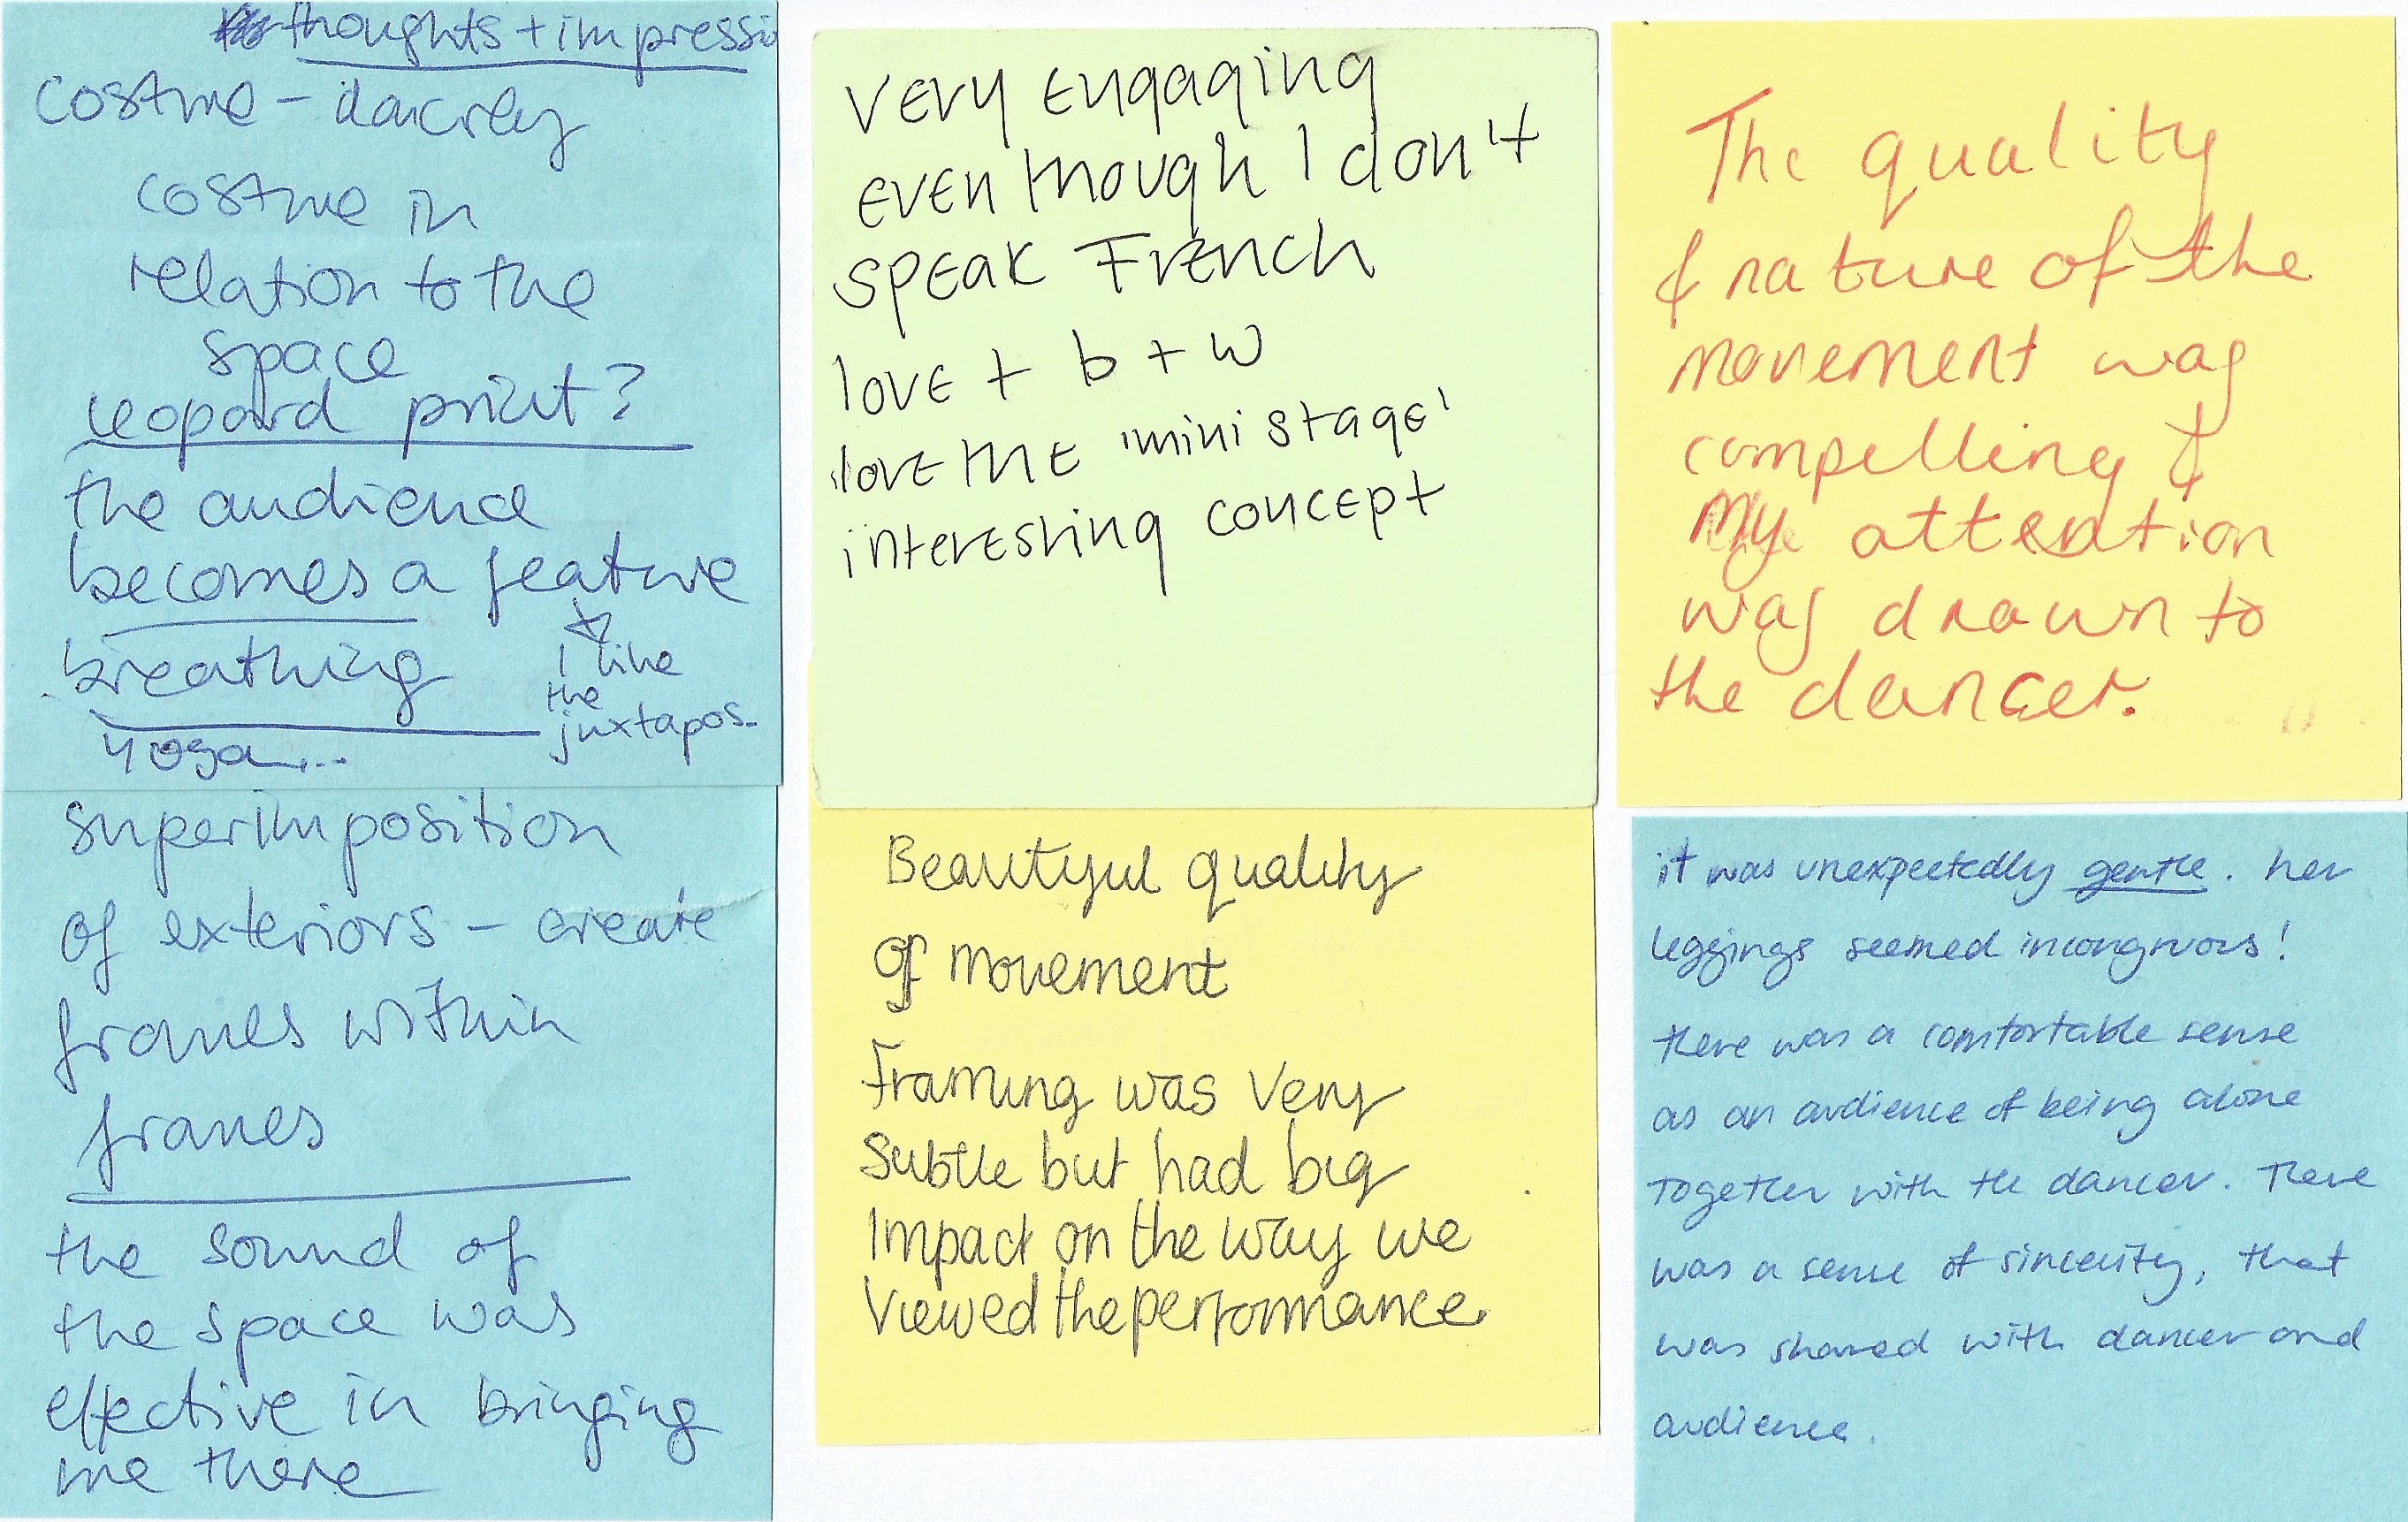 thoughts + impressi
costume – dancer
costume in
relation to the
space
leopard print?
the audience
becomes a feature
I like
the
juxtapos.
breathing
yoga...
superimposition
of exteriors – create
frames within
frames
the sound of
the space was
effective in bringing
me there
very engaging
even though I don't
speak French
love + b + w
love the 'mini stage'
interesting concept
Beautiful quality
of movement
Framing was very
subtle but had big
impact on the way we
viewed the performance.
The quality
& nature of the
movement was
compelling &
my attention
was drawn to
the dancer.
it was unexpectedly gentle. her
leggings seemed incongruous!
there was a comfortable sense
as an audience of being alone
together with the dancer. There
was a sense of sincerity, that
was shared with dancer and
audience.